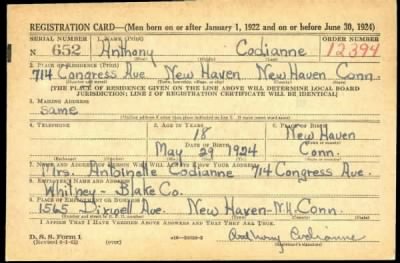 REGISTRATION CARD—(Men born on or after January 1, 1922 and on or before June 30, 1924)
SERIAL NUMBER 1. NAME (Print) ORDER NUMBER
N 652 Anthony Codianne 12394
2. PLACE OF RESIDENCE (Print)
714 Congress Ave New Haven New Haven Conn.
[THE PLACE OF RESIDENCE GIVEN ON THE LINE ABOVE WILL DETERMINE LOCAL BOARD
JURISDICTION; LINE 2 OF REGISTRATION CERTIFICATE WILL BE IDENTICAL]
3. MAILING ADDRESS
same
4. TELEPHONE 5. AGE IN YEARS 6. PLACE OF BIRTH
18 New Haven
DATE OF BIRTH
May 29 1924 Conn.
7. NAME AND ADDRESS OF PERSON WHO WILL ALWAYS KNOW YOUR ADDRESS
Mrs. Antoinette Codianne 714 Congress Ave.
8. EMPLOYER'S NAME AND ADDRESS
Whitney-Blake Co.
9. PLACE OF EMPLOYMENT OR BUSINESS
1565 Dixwell Ave. New Haven-N.H. Conn.
I AFFIRM THAT I HAVE VERIFIED ABOVE ANSWERS AND THAT THEY ARE TRUE.
D. S. S. Form 1
Anthony Codianne